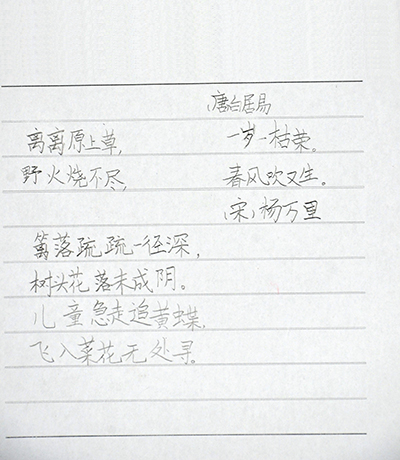 (唐)白居易
离离原上草, 一岁一枯荣。
野火烧不尽, 春风吹又生。
(宋)杨万里
篱落疏疏一径深,
树头花落未成阴。
儿童急走追黄蝶,
飞入菜花无处寻。